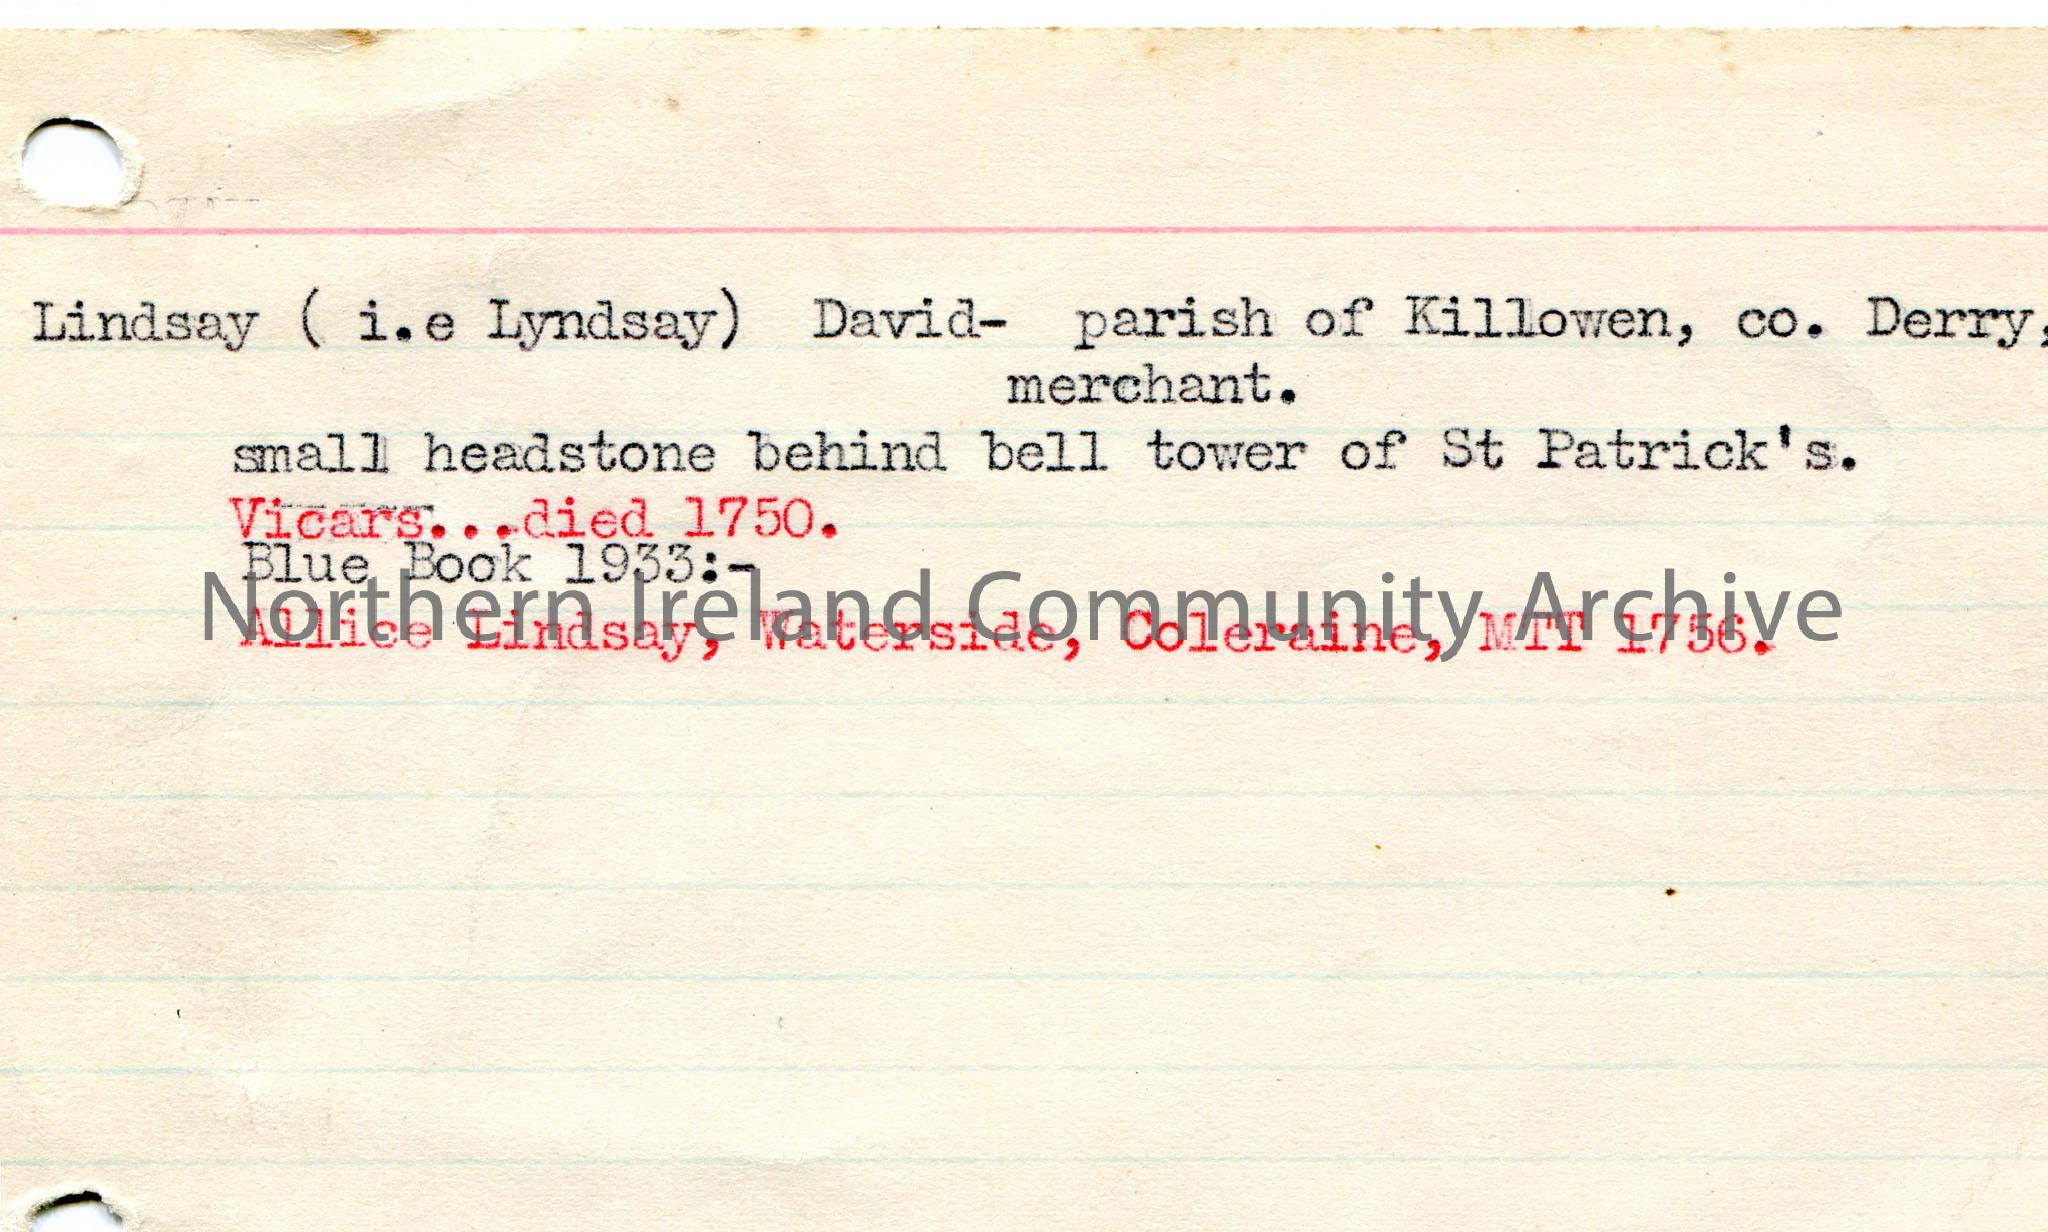 Lindsay ( i.e Lyndsay) David- parish of Killowen, co. Derry,
merchant.
small headstone behind bell tower of St Patrick's.
Vicars...died 1750.
Blue Book 1933:-
Northern Ireland Community Archive
Allice Lindsay, Waterside, Coleraine, MTT 1756.